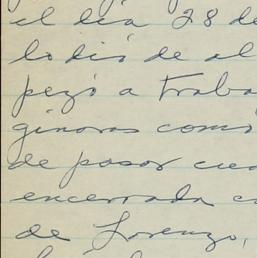 el día 28 de
lo dió de al
pezó a traba
ginoras como
de pasar cua
encerrada c
de Lorenzo,